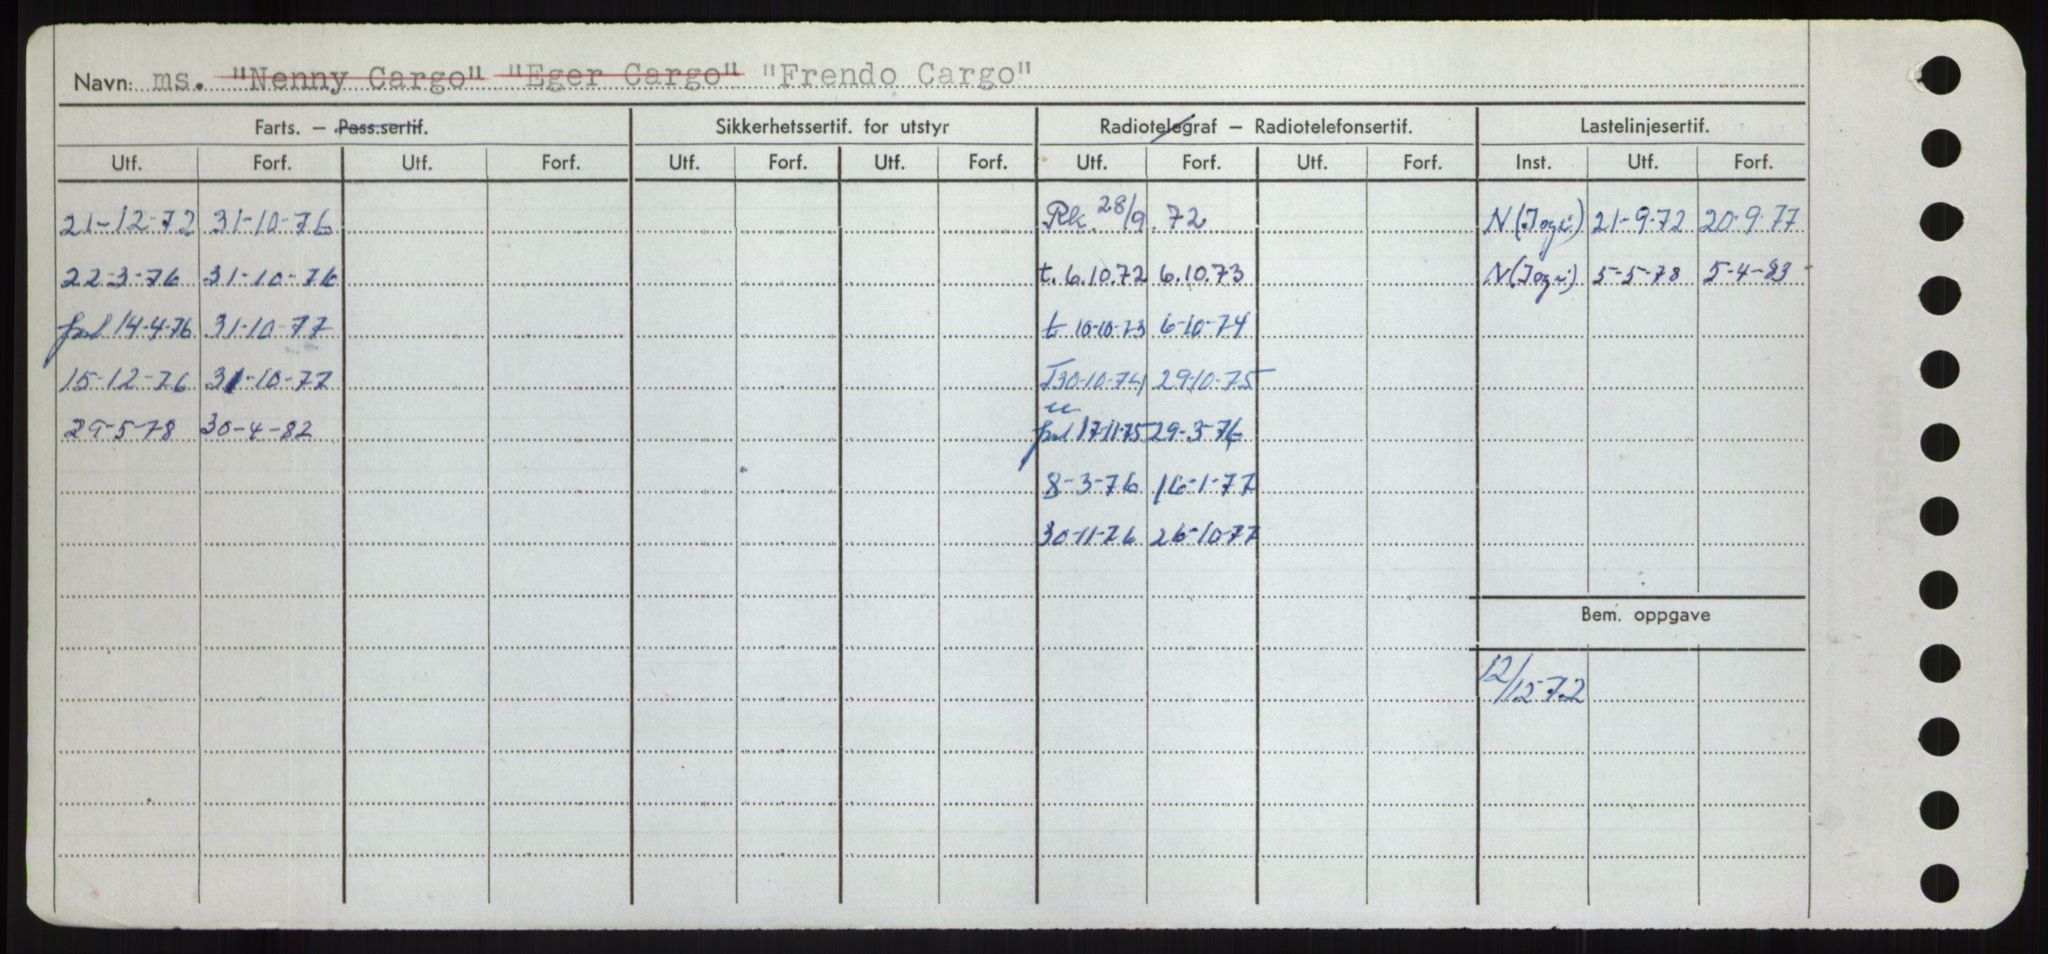 Navn: ms. "Nenny Cargo" "Eger Cargo" "Frendo Cargo"
Farts. — Pass.sertif. Sikkerhetssertif. for utstyr Radiotelegraf — Radiotelefonsertif. Lastelinjesertif.
Utf. Forf. Utf. Forf. Utf. Forf. Utf. Forf. Utf. Forf. Utf. Forf. Inst. Utf. Forf.
21-12-72 31-10-76 Rk. 28/9.72 N(Jogi) 21-9-72 20-9-77
22-3-76 31-10-76 t. 6.10.72 6.10.73 N(Jogi) 5-5-78 5-4-83
14-4-76 31-10-77 t 10-10-73 6-10-74
15-12-76 31-10-77 T30-10-74 29-10-75
29-5-78 30-4-82 17-11-75 29-3-76
8-3-76 16-1-77
30-11-76 26-10-77
Bem. oppgave
12/12-72